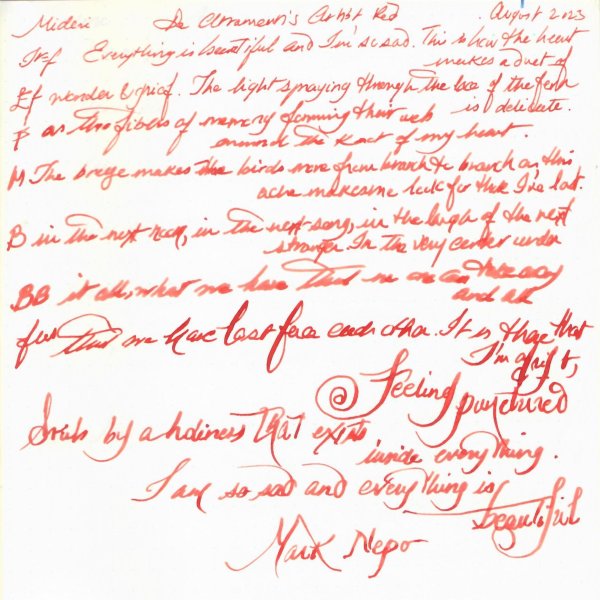 Midori De Atramentis Artist Red August 2023
Jr=f Everything is beautiful and I'm so sad. This is how the heart
makes a duet of
Ef wonder & grief. The light spraying through the lace of the fern
is delicate.
F as the fibers of memory forming their web
around the knot of my heart.
M The breeze makes the birds move from branch to branch as this
ache makes me look for those I've lost.
B in the next room, in the next song, in the laugh of the next
stranger. In the very center under
BB it all, what we have that no one can take away
and all
that we have lost face each other. It is there that
I'm adrift,
Feeling punctured
by a holiness that exists
inside everything.
I am so sad and everything is
beautiful
Mark Nepo